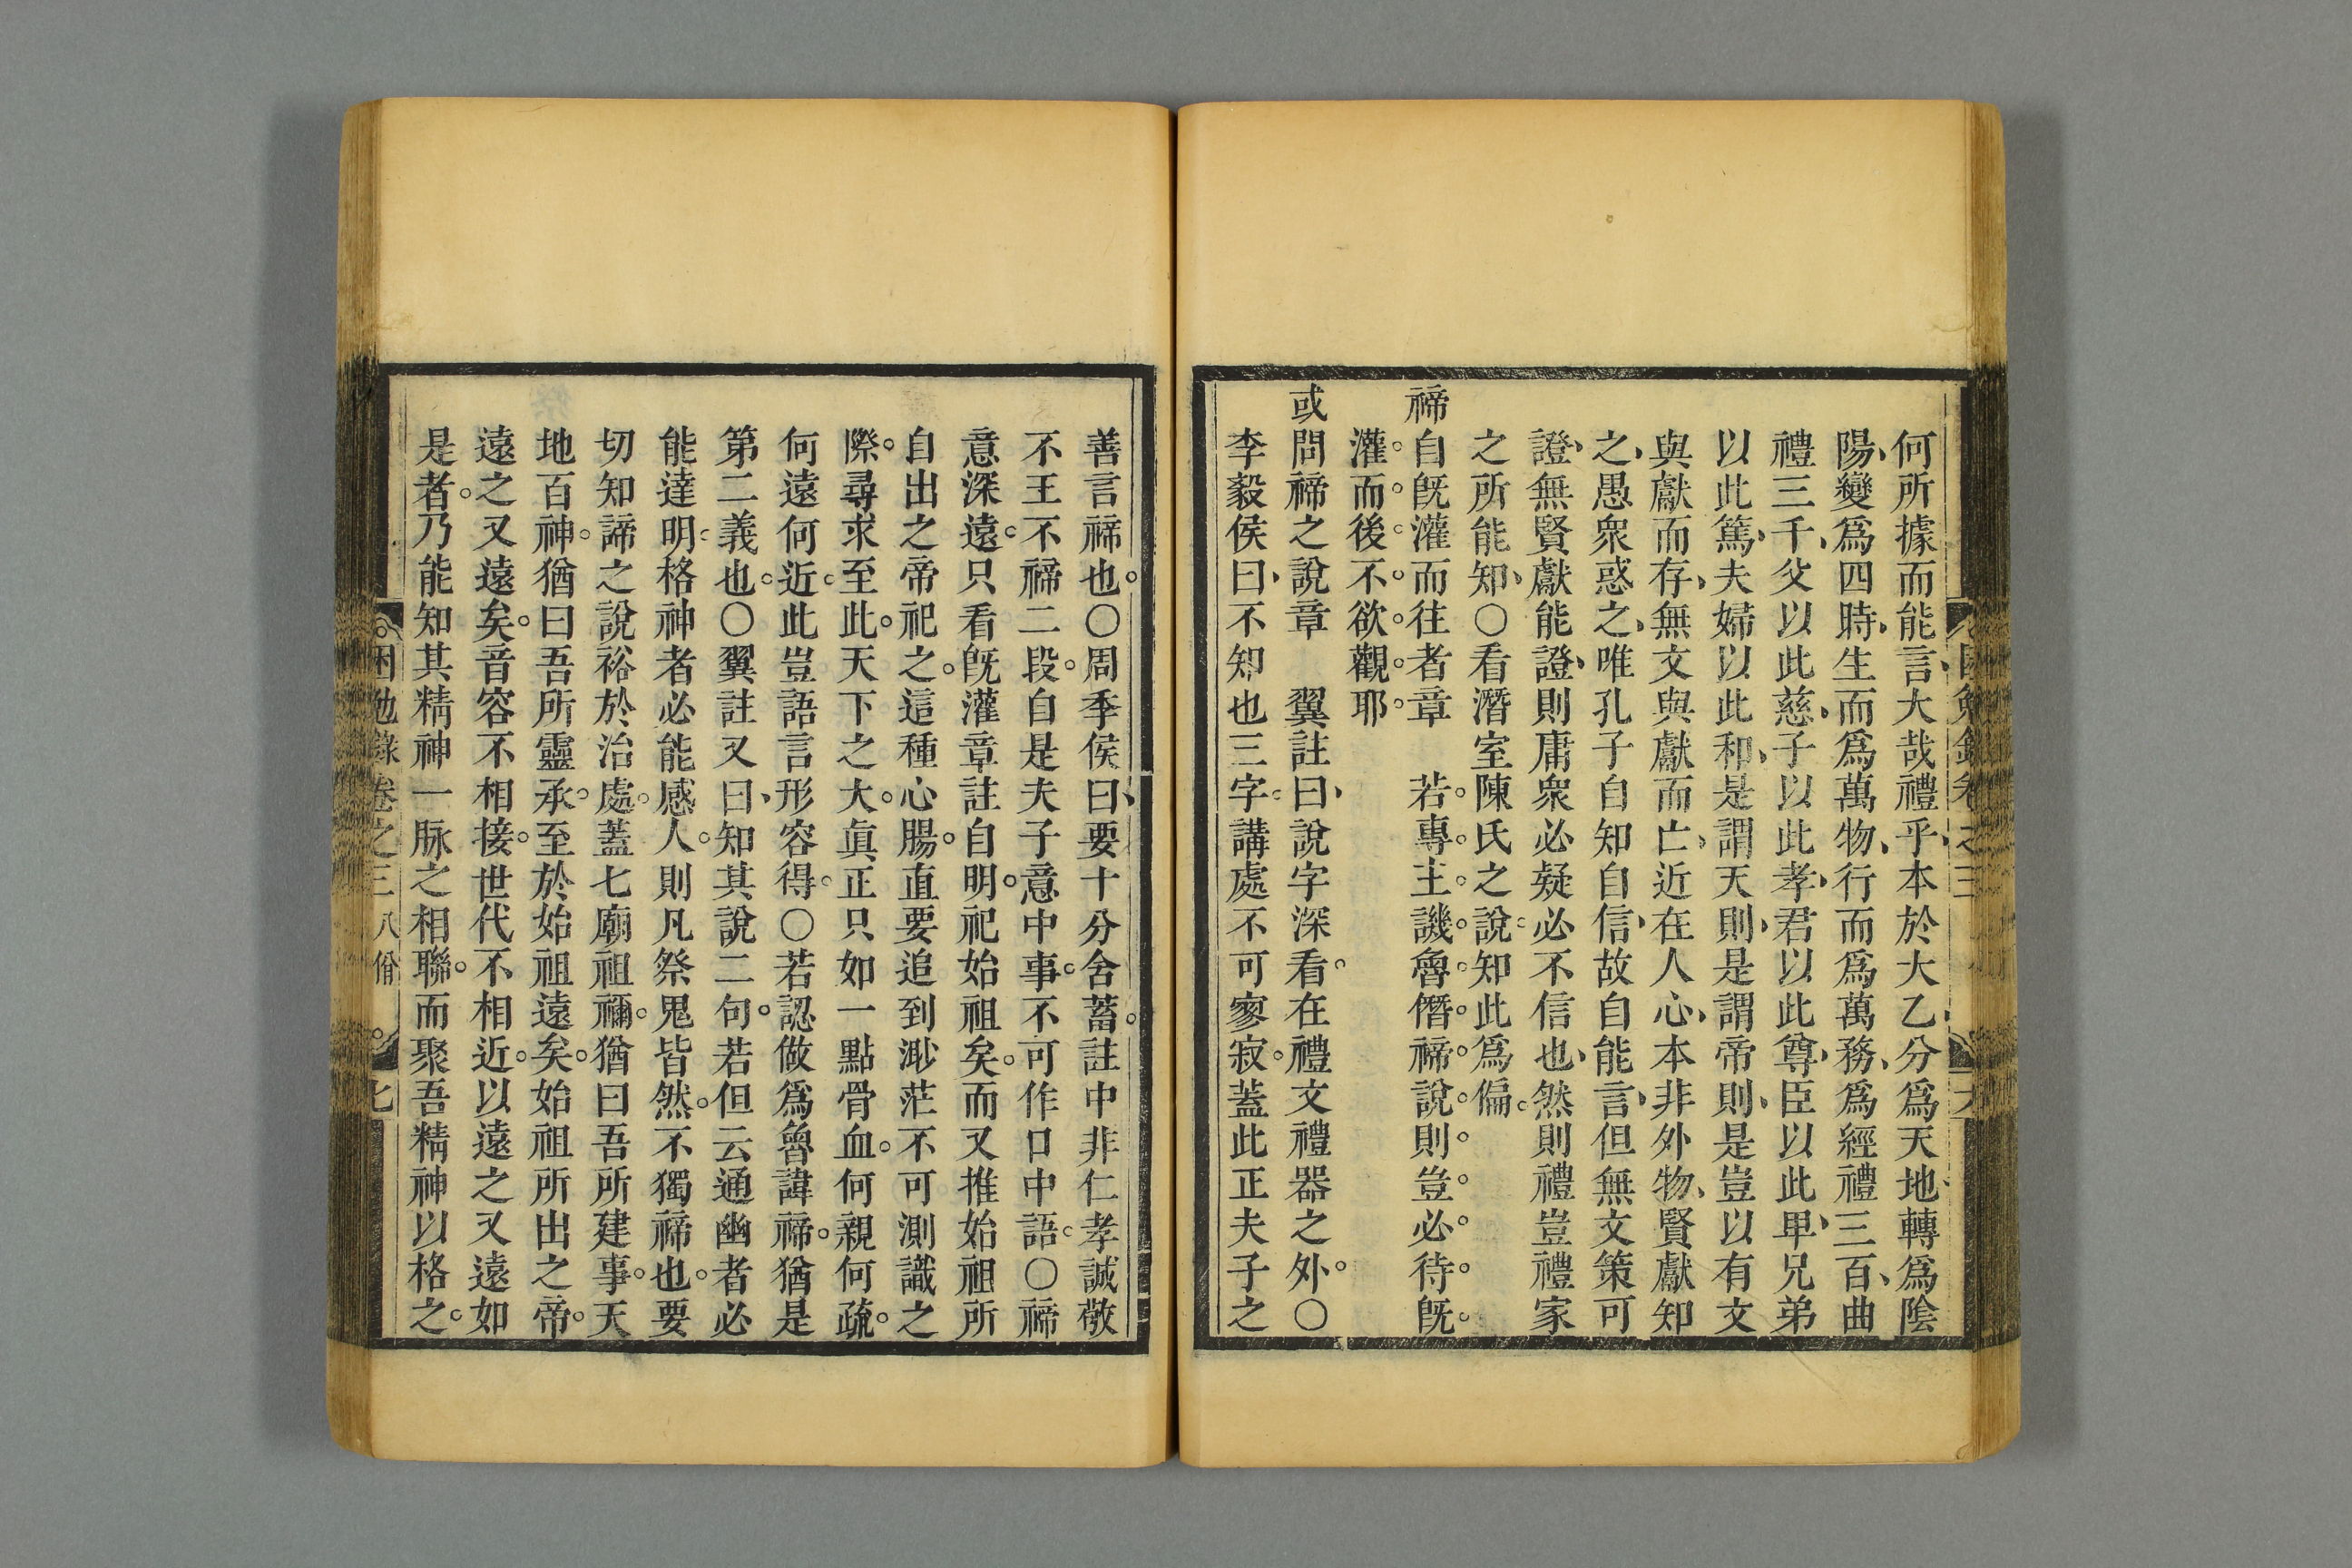 何所據而能言、大哉禮乎、本於大乙、分爲天地、轉爲陰
陽、變爲四時、生而爲萬物、行而爲萬務、爲經禮三百、曲
禮三千、父以此慈、子以此孝、君以此尊、臣以此卑、兄弟
以此篤、夫婦以此和、是謂天則、是謂帝則、是豈以有文
與獻而存、無文與獻而亡、近在人心、本非外物、賢獻知
之、愚衆惑之、唯孔子自知自信、故自能言、但無文策可
證、無賢獻能證、則庸衆必疑必不信也、然則禮豈禮家
之所能知、○看潛室陳氏之說。知此爲偏。
禘自旣灌而往者章　若。專。主。譏。魯。僭。禘。說。則。豈。必。待。旣。
灌。而。後。不。欲。觀。耶。
或問禘之說章　翼註曰、說字深看。在禮文禮器之外。○
李毅侯曰、不知也三字。講處不可寥寂。蓋此正夫子之
善言禘也。○周季侯曰、要十分舍蓄。註中非仁孝誠敬
不王不禘二段。自是夫子意中事。不可作口中語。○禘
意深遠。只看旣灌章註自明。祀始祖矣。而又推始祖所
自出之帝祀之。這種心腸。直要追到渺茫不可測識之
際。尋求至此。天下之大。眞正只如一點骨血。何親何疏。
何遠何近。此豈語言形容得。○若認做爲魯諱禘。猶是
第二義也。○翼註又曰、知其說二句。若但云通幽者必
能達明。格神者必能感人。則凡祭鬼皆然。不獨禘也。要
切知諦之說裕於治處。蓋七廟祖禰。猶曰吾所建事。天
地百神。猶曰吾所靈承。至於始祖遠矣。始祖所出之帝。
遠之又遠矣。音容不相接。世代不相近。以遠之又遠如
是者。乃能知其精神一脉之相聯。而聚吾精神以格之。
困勉錄卷之三　八佾　七